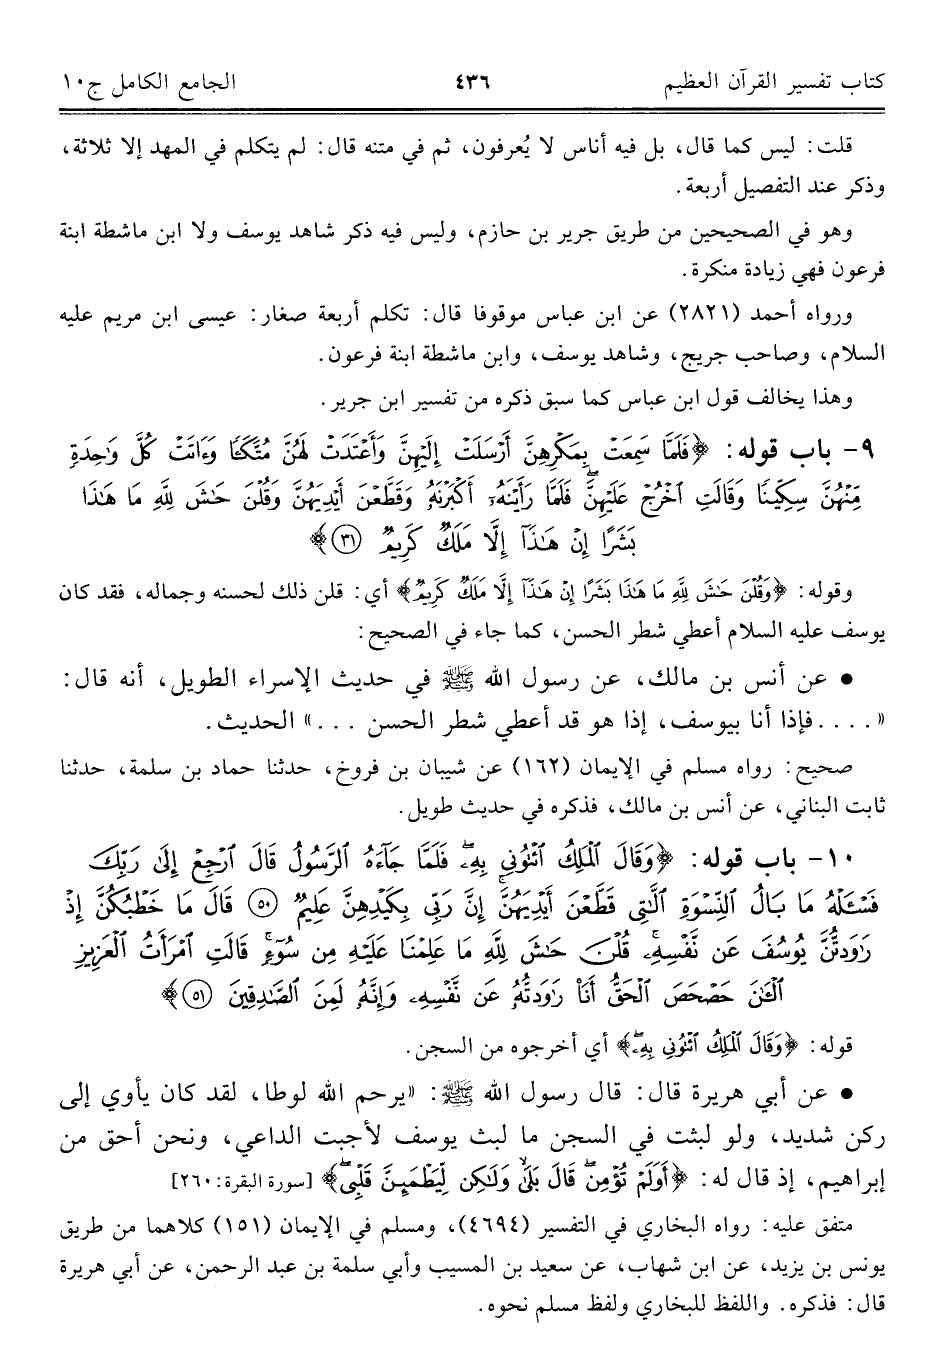 كتاب تفسير القرآن العظيم ٤٣٦ الجامع الكامل ج١٠
قلت: ليس كما قال، بل فيه أناس لا يُعرفون، ثم في متنه قال: لم يتكلم في المهد إلا ثلاثة،
وذكر عند التفصيل أربعة.
وهو في الصحيحين من طريق جرير بن حازم، وليس فيه ذكر شاهد يوسف ولا ابن ماشطة ابنة
فرعون فهي زيادة منكرة.
ورواه أحمد (٢٨٢١) عن ابن عباس موقوفا قال: تكلم أربعة صغار: عيسى ابن مريم عليه
السلام، وصاحب جريج، وشاهد يوسف، وابن ماشطة ابنة فرعون.
وهذا يخالف قول ابن عباس كما سبق ذكره من تفسير ابن جرير.
٩- باب قوله: ﴿فَلَمَّا سَمِعَتْ بِمَكْرِهِنَّ أَرْسَلَتْ إِلَيْهِنَّ وَأَعْتَدَتْ لَهُنَّ مُتَّكَـًٔا وَءَاتَتْ كُلَّ وَٰحِدَةٍ
مِّنْهُنَّ سِكِّينًا وَقَالَتِ ٱخْرُجْ عَلَيْهِنَّ ۖ فَلَمَّا رَأَيْنَهُۥٓ أَكْبَرْنَهُۥ وَقَطَّعْنَ أَيْدِيَهُنَّ وَقُلْنَ حَٰشَ لِلَّهِ مَا هَٰذَا
بَشَرًا إِنْ هَٰذَآ إِلَّا مَلَكٌ كَرِيمٌ ٣١﴾
وقوله: ﴿وَقُلْنَ حَٰشَ لِلَّهِ مَا هَٰذَا بَشَرًا إِنْ هَٰذَآ إِلَّا مَلَكٌ كَرِيمٌ﴾ أي: قلن ذلك لحسنه وجماله، فقد كان
يوسف عليه السلام أعطي شطر الحسن، كما جاء في الصحيح:
• عن أنس بن مالك، عن رسول الله ﷺ في حديث الإسراء الطويل، أنه قال:
«....فإذا أنا بيوسف، إذا هو قد أعطي شطر الحسن ...» الحديث.
صحيح: رواه مسلم في الإيمان (١٦٢) عن شيبان بن فروخ، حدثنا حماد بن سلمة، حدثنا
ثابت البناني، عن أنس بن مالك، فذكره في حديث طويل.
١٠- باب قوله: ﴿وَقَالَ ٱلْمَلِكُ ٱئْتُونِي بِهِۦ ۖ فَلَمَّا جَآءَهُ ٱلرَّسُولُ قَالَ ٱرْجِعْ إِلَىٰ رَبِّكَ
فَسْـَٔلْهُ مَا بَالُ ٱلنِّسْوَةِ ٱلَّٰتِى قَطَّعْنَ أَيْدِيَهُنَّ ۚ إِنَّ رَبِّى بِكَيْدِهِنَّ عَلِيمٌ ٥٠ قَالَ مَا خَطْبُكُنَّ إِذْ
رَٰوَدتُّنَّ يُوسُفَ عَن نَّفْسِهِۦ ۚ قُلْنَ حَٰشَ لِلَّهِ مَا عَلِمْنَا عَلَيْهِ مِن سُوٓءٍ ۚ قَالَتِ ٱمْرَأَتُ ٱلْعَزِيزِ
ٱلْـَٰٔنَ حَصْحَصَ ٱلْحَقُّ أَنَا۠ رَٰوَدتُّهُۥ عَن نَّفْسِهِۦ وَإِنَّهُۥ لَمِنَ ٱلصَّٰدِقِينَ ٥١﴾
قوله: ﴿وَقَالَ ٱلْمَلِكُ ٱئْتُونِي بِهِۦ ۖ﴾ أي أخرجوه من السجن.
• عن أبي هريرة قال: قال رسول الله ﷺ: «يرحم الله لوطا، لقد كان يأوي إلى
ركن شديد، ولو لبثت في السجن ما لبث يوسف لأجبت الداعي، ونحن أحق من
إبراهيم، إذ قال له: ﴿أَوَلَمْ تُؤْمِن ۖ قَالَ بَلَىٰ وَلَٰكِن لِّيَطْمَئِنَّ قَلْبِى ۖ﴾ [سورة البقرة: ٢٦٠]
متفق عليه: رواه البخاري في التفسير (٤٦٩٤)، ومسلم في الإيمان (١٥١) كلاهما من طريق
يونس بن يزيد، عن ابن شهاب، عن سعيد بن المسيب وأبي سلمة بن عبد الرحمن، عن أبي هريرة
قال: فذكره. واللفظ للبخاري ولفظ مسلم نحوه.